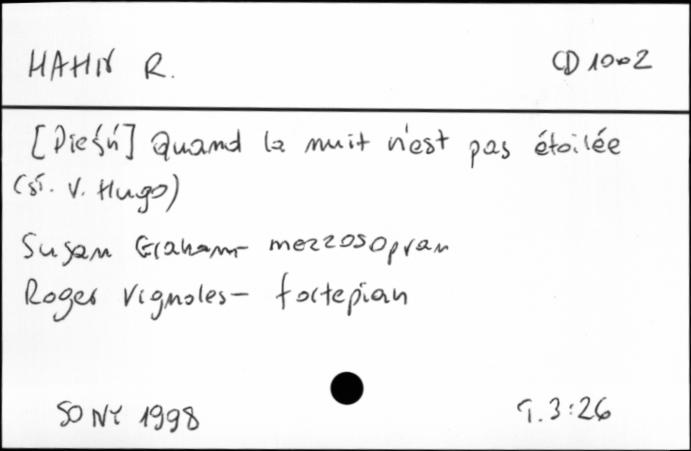 HAHN R. CD 1002
[Pieśń] Quand la nuit n'est pas étoilée
(sł. V. Hugo)
Susan Graham - mezzosopran
Roger Vignoles - fortepian
SONY 1998 T. 3:26